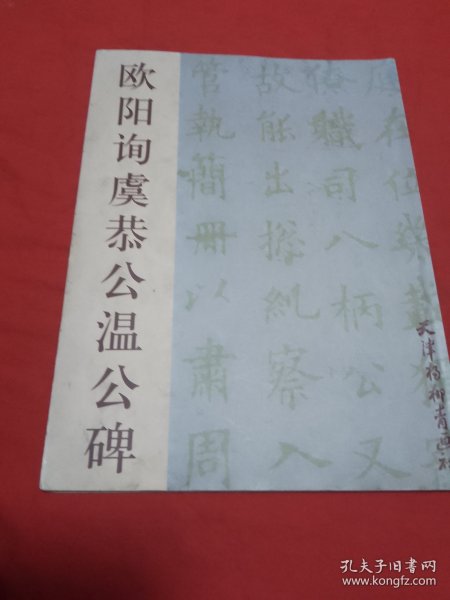 欧阳询虞恭公温公碑
在位
職司八柄公又
故能出摠糺察入
管執簡冊以肅周
天津杨柳青画社
孔夫子旧书网
www.kongfz.com